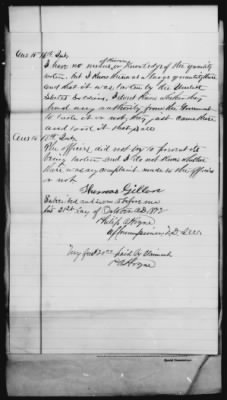 Ans 15th Inty
of knowing
I have no means or knowledge of the quantity
taken, but I know there was a large quantity there
and that it was taken by the United
States Soldiers, I don't know whether they
had any authority from the Government
to take it or not, they just came there
and took it that's all
Ans to 16th Inty.
The officers did not try to prevent its
being taken and I do not know whether
there was any complaint made to the officers
or not.
Thomas
Subscribed and sworn to before me
this 21st day of October A.D. 1872
Philip A Hoyne
Commissioner
My fees paid by Claimant
P A Hoyne